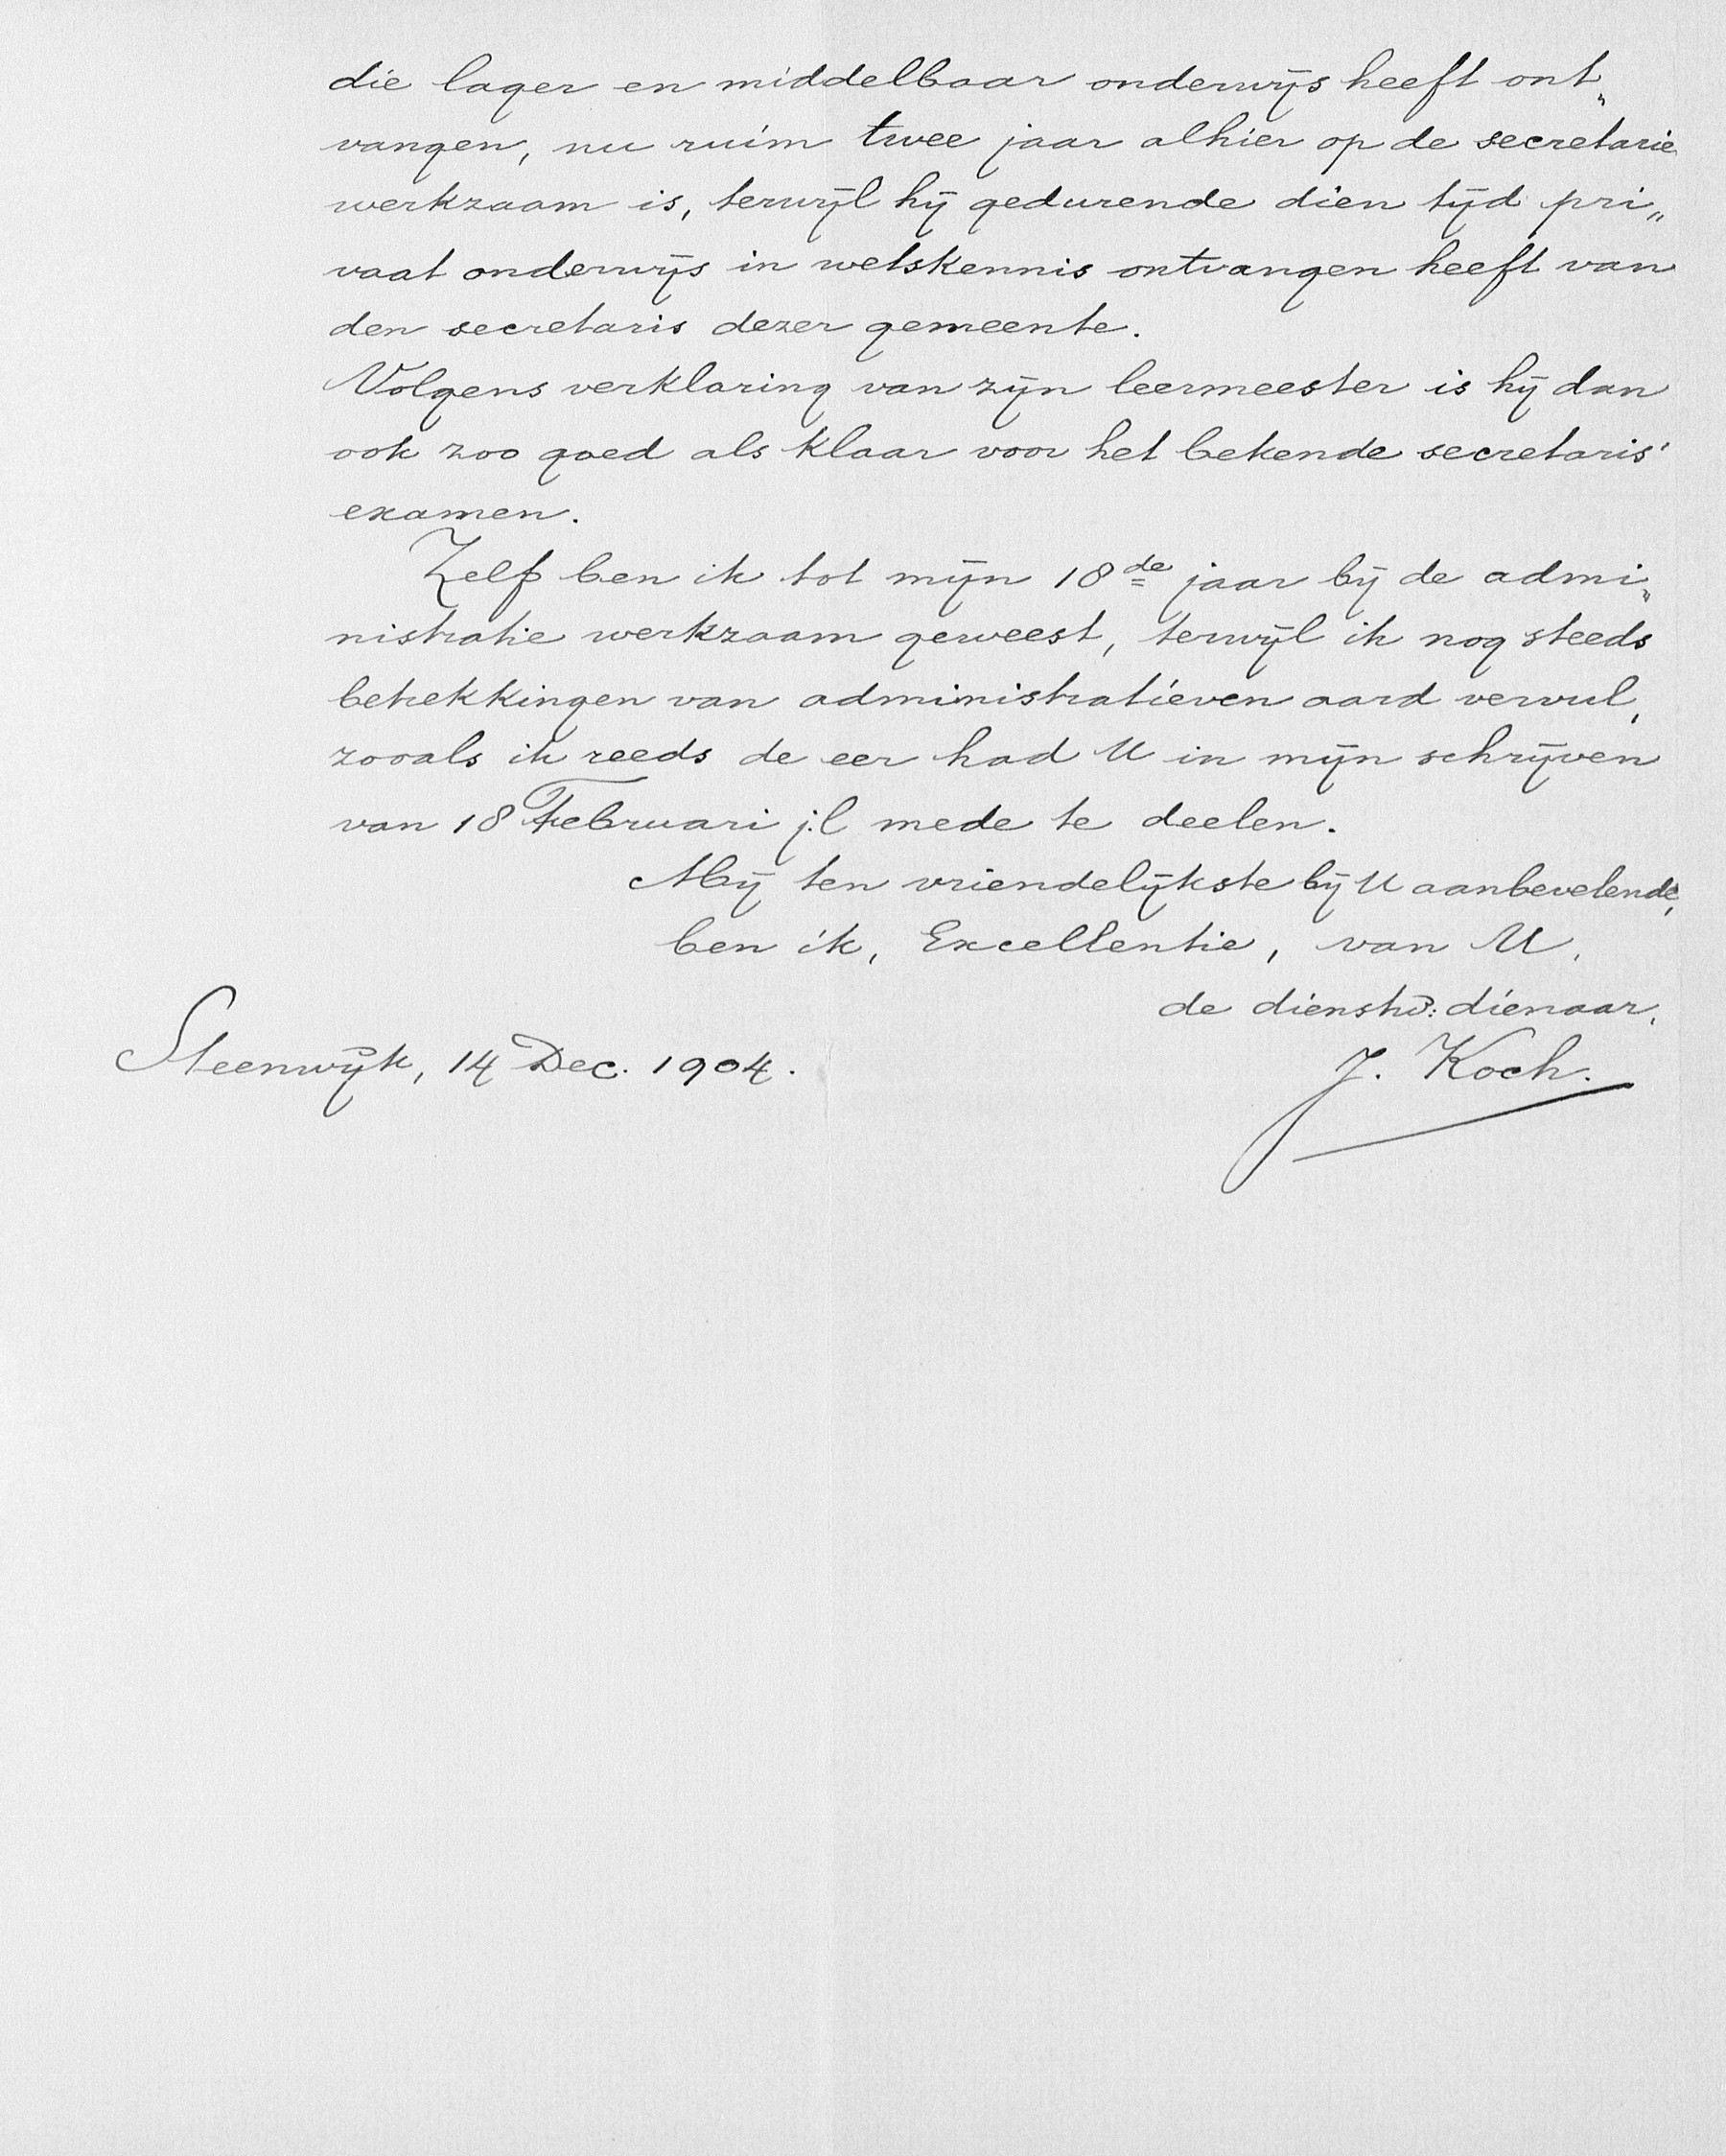 die lager en middelbaar onderwijs heeft ont„
vangen, nu ruim twee jaar alhier op de secretarie
werkzaam is, terwijl hij gedurende dien tijd pri„
vaat onderwijs in wetskennis ontvangen heeft van
den secretaris dezer gemeente.
Volgens verklaring van zijn leermeester is hij dan
ook zoo goed als klaar voor het bekende secretaris'
examen.
Zelf ben ik tot mijn 18de jaar bij de admi„
nistratie werkzaam geweest, terwijl ik nog steeds
betrekkingen van administratieven aard vervul,
zooals ik reeds de eer had U in mijn schrijven
van 18 Februari j.l mede te deelen.
Mij ten vriendelijkste bij U aanbevelende,
ben ik, Excellentie, van U,
de dienstw: dienaar,
Steenwijk, 14 Dec. 1904.
J. Koch.